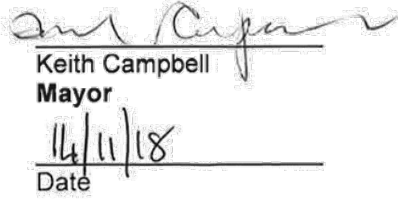 Keith Campbell
Mayor
14/11/18
Date